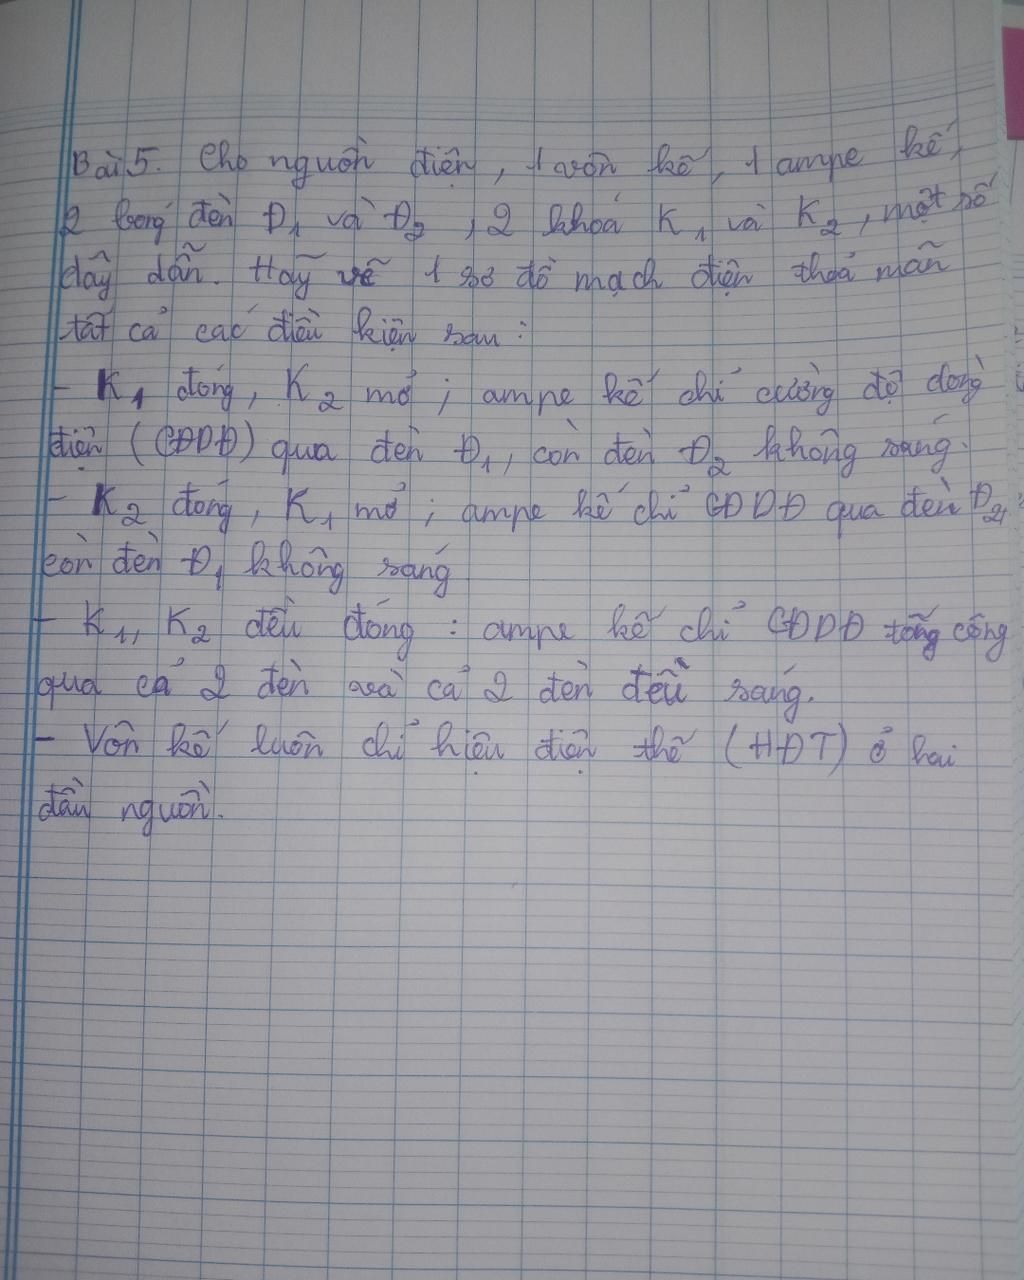 Bài 5. Cho nguồn điện, 1 vôn kế, 1 ampe kế,
2 bóng đèn Đ1 và Đ2, 2 khoá K1 và K2, một số
dây dẫn. Hãy vẽ 1 sơ đồ mạch điện thoả mãn
tất cả các điều kiện sau:
- K1 đóng, K2 mở; ampe kế chỉ cường độ dòng
điện (CĐDĐ) qua đèn Đ1, còn đèn Đ2 không sáng.
- K2 đóng, K1 mở; ampe kế chỉ CĐDĐ qua đèn Đ2,
còn đèn Đ1 không sáng
- K1, K2 đều đóng: ampe kế chỉ CĐDĐ tổng cộng
qua cả 2 đèn và cả 2 đèn đều sáng.
- Vôn kế luôn chỉ hiệu điện thế (HĐT) ở hai
đầu nguồn.